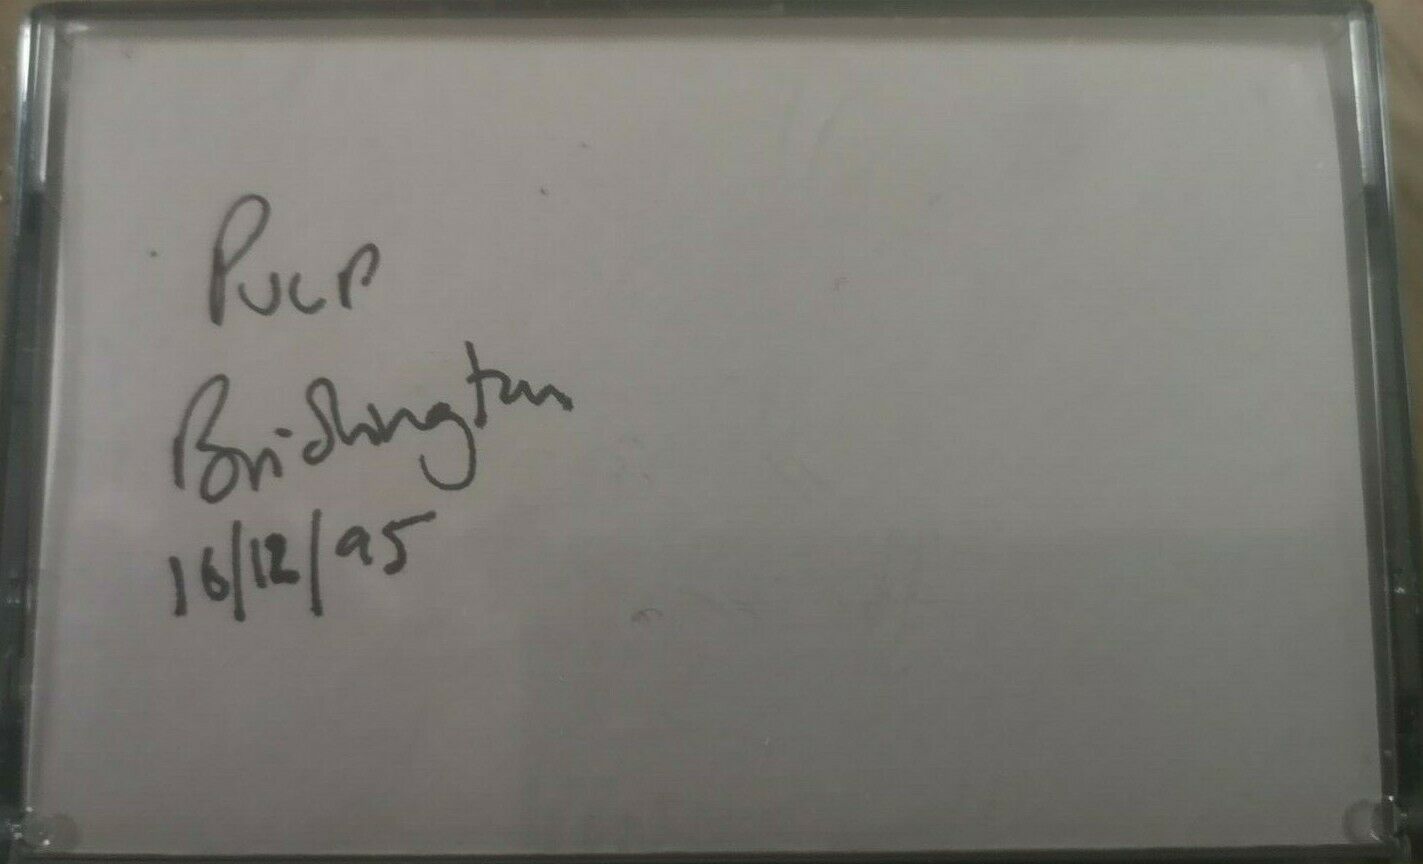 PULP
Bridlington
16/12/95